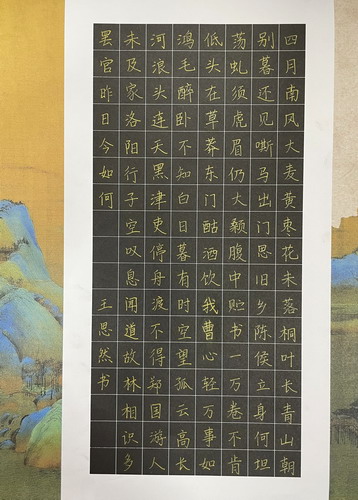 四月南风大麦黄枣花未落桐叶长青山朝
别暮还见嘶马出门思旧乡陈侯立身何坦
荡虬须虎眉仍大颡腹中贮书一万卷不肯
低头在草莽东门酤酒饮我曹心轻万事如
鸿毛醉卧不知白日暮有时空望孤云高长
河浪头连天黑津吏停舟渡不得郑国游人
未及家洛阳行子空叹息闻道故林相识多
罢官昨日今如何 王思然书